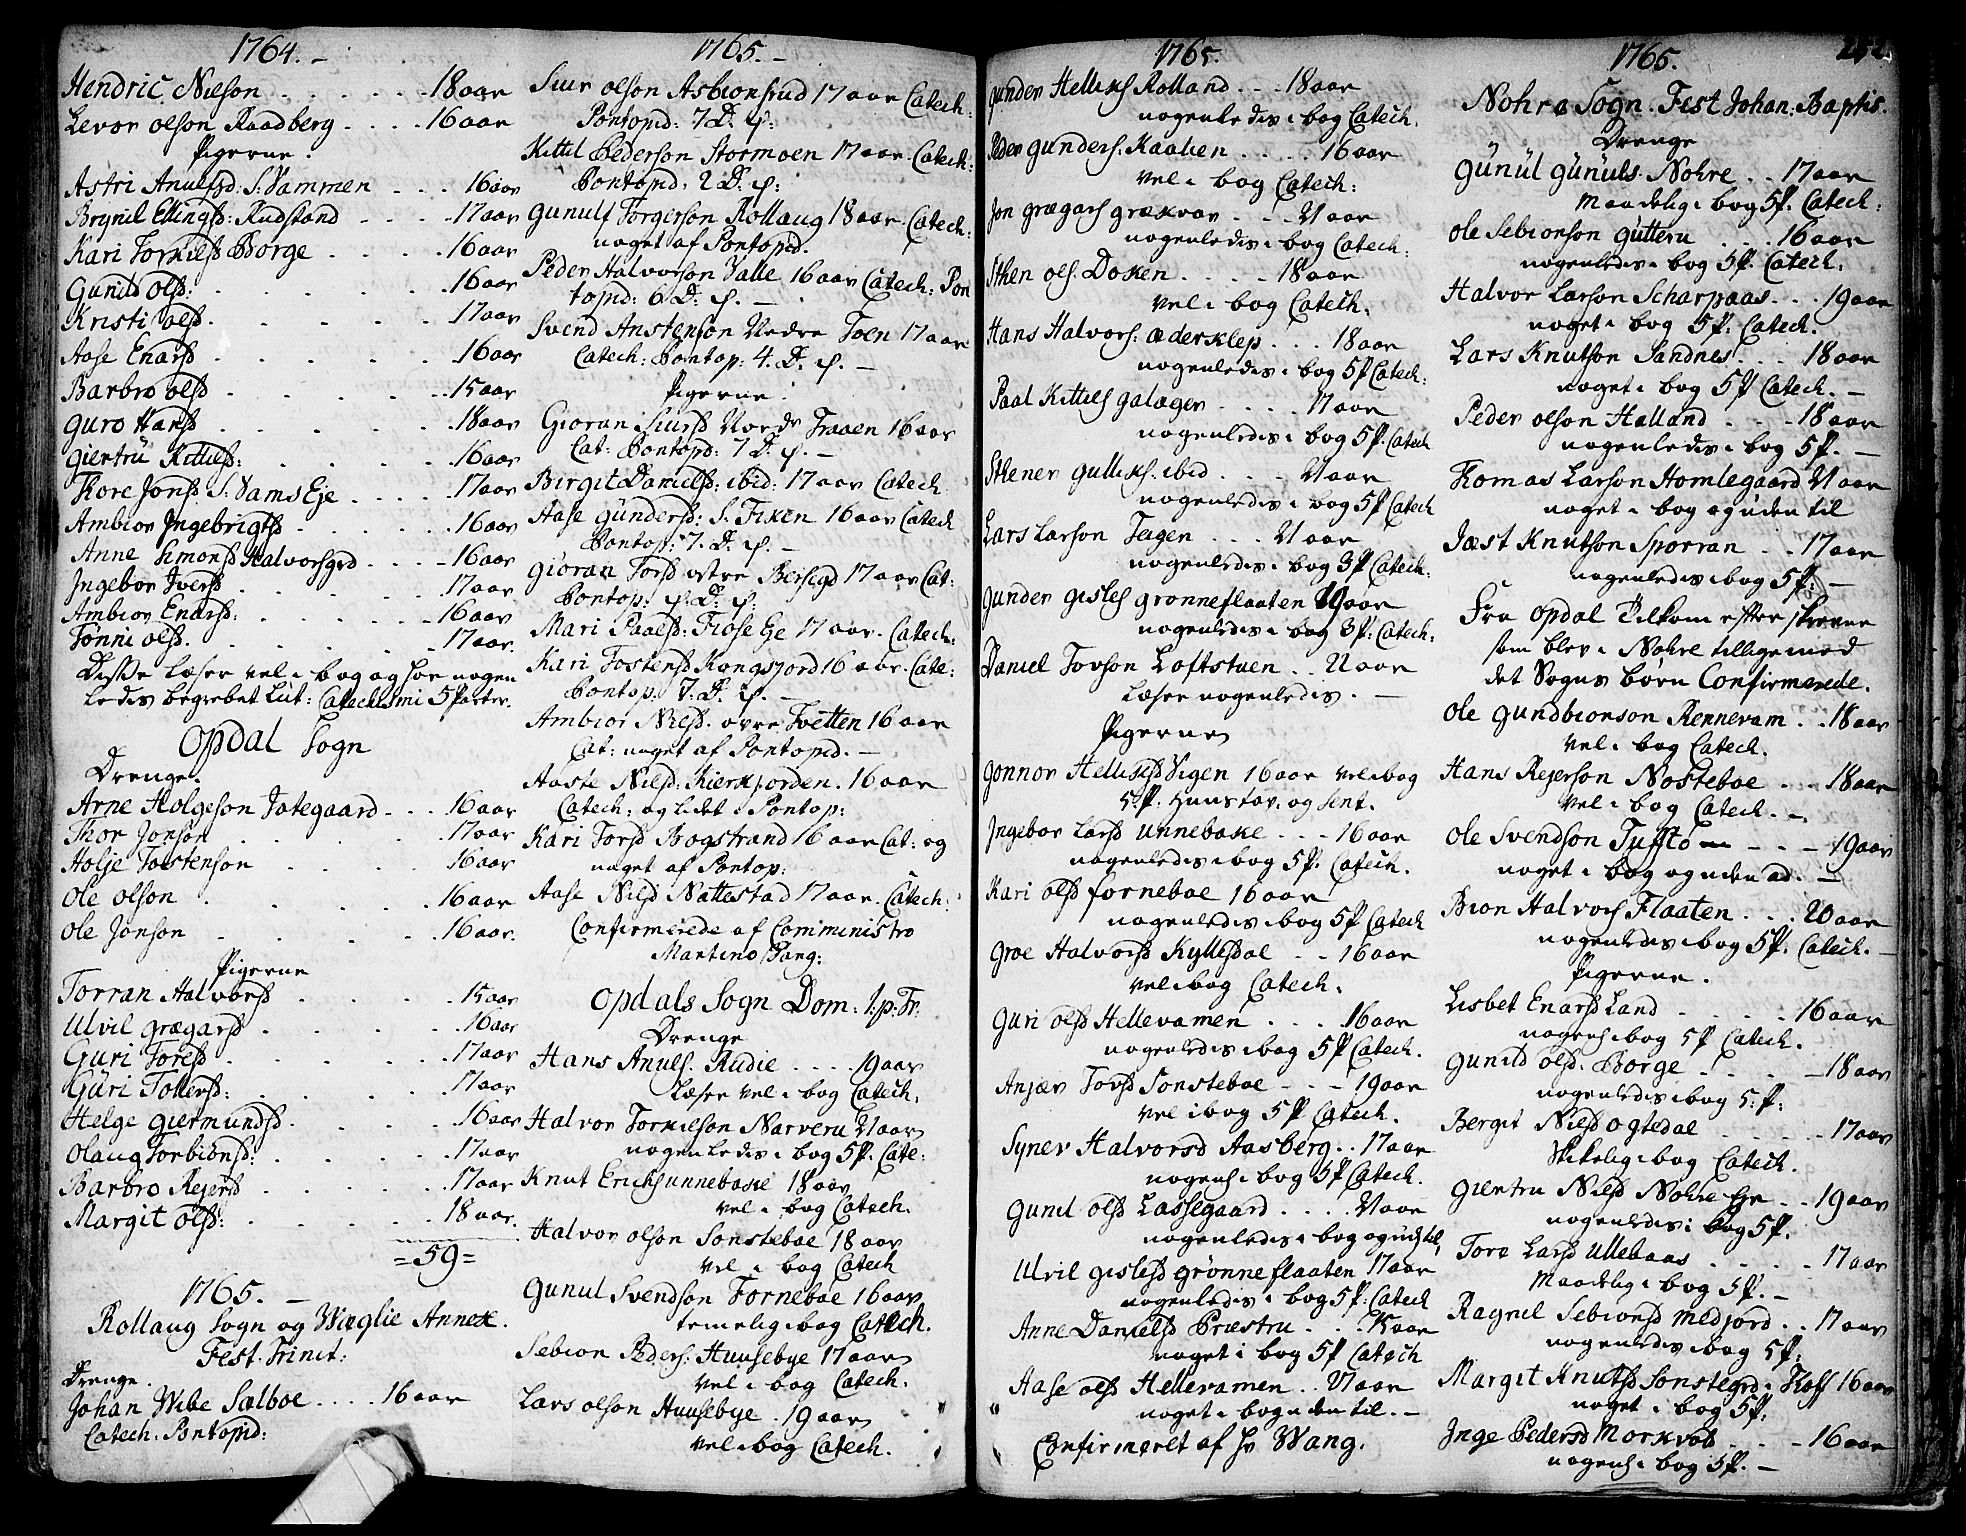 1764.-
Hendric Nielson . . . . . . 18 aar
Levor olson Raadberg . . . . 16 aar
Pigerne.
Astri Anulfsd: S: Vammen . . . 16 aar
Brynil Ellingsd: Rudstand . . . . 17 aar
Kari Torkielsd Borge . . . . . 16 aar
Gunild Olsd: . . . . . . 16 aar
Kristi olsd. . . . . . 17 aar
Aase Enarsd . . . . . 16 aar
Barbro olsd . . . . . 15 aar
Guro Hansd . . . . . 18 aar
Giertrü Kittilsd: . . . . . 16 aar
Thore Jonsd S: Vams Eje . . . . . 17 aar
Ambior Jngebrigtsd . . . . . 16 aar
Anne Simonsd Halvorsgrd . . . . 16 aar
Jngebor Jversd . . . . . . 17 aar
Ambior Enarsd: . . . . . . 16 aar
Tonni olsd. . . . . . . 17 aar.
Disse Læser vel i bog og har nogen
ledis begrebet Lut: Catechismi 5 Parter.
Opdal Sogn
Drenge.
Arne Holgeson Jategaard . . . 16 aar
Thor Jonson . . . . . 17 aar
Holje Tostenson . . . . 16 aar
Ole olson . . . . . 16 aar
Ole Jonson . . . . 16 aar.
Pigerne
Torran Halvorsd . . . . 15 aar
Ulvil grægarsd . . . . . 16 aar
Guri Toresd . . . . . 17 aar
Güri Tollersd: . . . . . 17 aar
Helge giermundsd . . . . . 16 aar
Olaug Torbionsd: . . . . . 17 aar
Barbro Rejersd . . . . . 17 aar
Margit olsd: . . . . . 18 aar.
=59=
1765.-
Rollaug Sogn og Wæglie Annex.
Fest. Trinit:
Drenge.
Johan Wibe Sælboe . . . . 16 aar
Catech: Pontopid:
1765.-
Siur olson Asbionsrud 17 aar Catech:
Pontopid: 7 D. p:
Kittil Pederson Stormoen 17 aar. Catech:
Pontopid: 2 D: p:
Gunulf Torgierson Rollaug 18 aar. Catech:
noget af Pontopid.
Peder Halvorson Valle 16 aar Catech: Pon
topid: 6 D: p. -
Svend Anstenson Nedre Toen 17 aar
Catech: Pontop: 4. D. p. -
Pigerne.
Gioran Siursd Nordr Traaen 16 aar
Cat: Pontopd: 7 D. p. -
Birgit Danielsd: ibid: 17 aar Catech
Aase Gündersd: S. Fixen 16 aar Catech
Pontop: 7. D. p. -
Gioran Torsd østre Bersegd 17 aar Cat:
Pontop: p: D: p:
Mari Paalsd: Fiose Eje 17 aar. Catech:
Kari Tostensd Kongsjord 16 aar. Cate:
Pontop: 7. D. p. -
Ambior Nilsd. øvre Tvetten 16 aar
Cat: noget af Pontopid. -
Aaste Nilsd. Kierkjorden. 16 aar
Catech: og lidet i Pontop:
Kari Torsd Bogstrand 16 aar Cat: og
noget af Pontop:
Aase Nilsd Nattestad 17 aar. Catech:
Confirmerede af Comministro
Martino Vang:
Opdals Sogn Dom: 1. p: Tr:
Drenge
Hans Anuls. Rudie . . . . 19 aar
Læser vel i bog Catech.
Halvor Torkielson Narveru 21 aar
nogenledis i bog 5 P. Cate:
Knut Erichs unnebasie 18 aar
vel i bog Catech.
Halvor olson Sonsteboe 18 aar
vel i bog Catech
Gunul Svendson Forneboe 16 aar
temelig i bog Catech.
Sebion Peders: Huusebye 17 aar
vel i bog Catech.
Lars olson Huusebye . 19 aar
vel i bog Catech.
1765.
Gunder Helliks Rolland . . . 18 aar
nogenledis i bog Catech.
Peder Gunders. Kaalien . . . . . 16 aar
vel i bog Catech:
Jon grægars grækvar . . . 21 aar
nogenledis i bog Catech:
Sthen ols. Doken . . . . 18 aar
vel i bog Catech:
Hans Halvors: Øderklep . . . 18 aar
nogenledis i bog 5 P Catech:
Paal Kittils galager . . . . 17 aar
nogenledis i bog 5 P. Catech
Sthener Gulliks. ibid . . . . 21 aar
nogenledis i bog 5 P Catech
Lars Larson Teigen . . . 21 aar
nogenledis i bog 3 P Catech:
Gunder gisles grønneflaaten 19 aar
nogenledis i bog 3 P: Catech:
Daniel Torson Loftstuen . . 21 aar
Læser nogenledis. -
Pigerne
Gonnor Helliksd Vigen 16 aar vel i bog
5 P: Huustav. og Sent.
Jngebor Larsd unnebaske . . . 16 aar
nogenledis i bog 5 P. Catech.
Kari olsd forneboe 16 aar
nogenledis i bog 5 P Catech
Groe Halvorsd Kyllesdal . . 16 aar
vel i bog Catech.
Guri olsd Hellevamen . . . 16 aar
nogenledis i bog 5 P Catech.
Anjær Torsd Sonsteboe . . . 19 aar
vel i bog 5 P Catech.
Synev Halvorsd Aasberg . . 17 aar
nogens i bog 5 P Catech.
Gunil olsd Lassegaard . . . . 21 aar
nogenledis i bog og uden til.
Ulvil gislesd grønneflaaten 17 aar
nogenledis i bog 5 P: Catech
Anne Danielsd Præstru . . . 15 aar
noget i bog 5 P Catech
Aase olsd Hellevamen . . 21 aar
noget i bog uden til. -
Confirmeret af Hr Wang.
1765.
252
Nohre Sogn. Fest Johan: Baptis.
Drenge
Günül günüls. Nohre . . 17 aar
Maadelig i bog 5 P. Catech:
Ole Sebionson gutteru . . . 16 aar
nogenledis i bog 5 P. Catech.
Halvor Larson Scharpaas . . . 19 aar
noget i bog 5 P. Catech.
Lars Knutson Sandnes . . . 18 aar
noget i bog 5 P Catech. -
Peder olson Halland . . . 18 aar
nogenledis i bog 5 P. -
Tomas Larson Homlegaard 21 aar
noget i bog og uden til
Jæst Knutson Sporran . . 17 aar
nogenledis i bog 5 P: -
Fra Opdal Tilkom efterskrevne
som blev i Nohre tillige med
det Sogns børn Confirmerede.
Ole Gundbionson Rennevam . . 18 aar
vel i bog Catech.
Hans Rejerson Nosteboe . . . 18 aar
vel i bog Catech. -
Ole Svendson Tuftø . . . 19 aar
noget i bog og uden ad. -
Bion Halvors Flaaten . . . 20 aar
nogenledis i bog 5 P. Catech. -
Pigerne.
Lisbet Enarsd Land . . . . . 16 aar
nogens i bog 5 P Catech.
Gunild olsd. Borge . . . . . 18 aar
nogenledis i bog 5: P:
Bergit Nilsd Ogtedal . . . . . 17 aar
Skikelig i bog Catech.
Giertru Nilsd Nohre Eje . . 19 aar
nogenledis i bog 5 P.
Tore Larsd Ullebaas . . . . . 17 aar
Maadelig i bog 5 P. -
Ragnil Sebionsd Medjord . . 17 aar
nogenledis i bog 5 P:
Margit Knutsd Sonstegrd i Hoff 16 aar
noget i bog 5 P:
Jnge Pedersd Morkvold . . . . 16 aar
nogens i bog 5 P. -